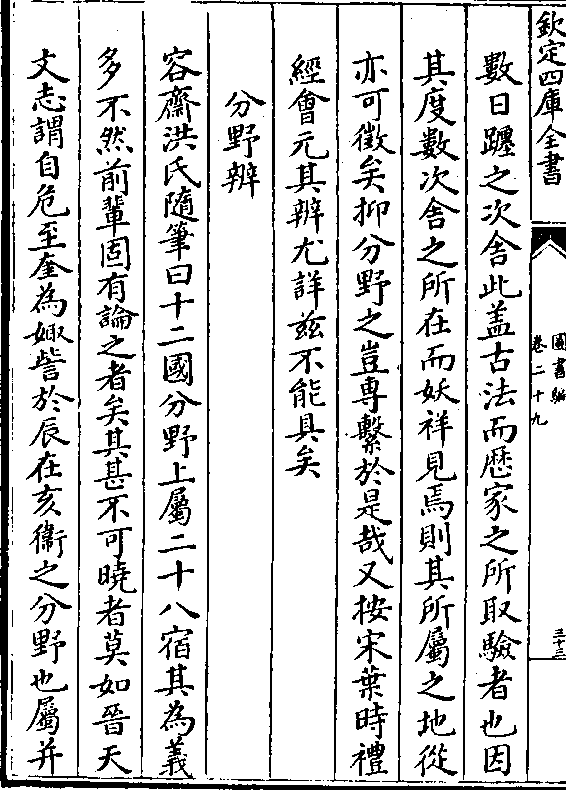 欽定四庫全書
圖書編
卷二十九
三十三
數日躔之次舍此蓋古法而歴家之所取驗者也因
其度數次舍之所在而妖祥見焉則其所屬之地從
亦可徵矣抑分野之豈專繫於是哉又按宋葉時禮
經會元其辨尤詳兹不能具矣
分野辨
容齋洪氏隨筆曰十二國分野上屬二十八宿其為義
多不然前輩固有論之者矣其甚不可曉者莫如晉天
文志謂自危至奎為娵訾於辰在亥衞之分野也屬并